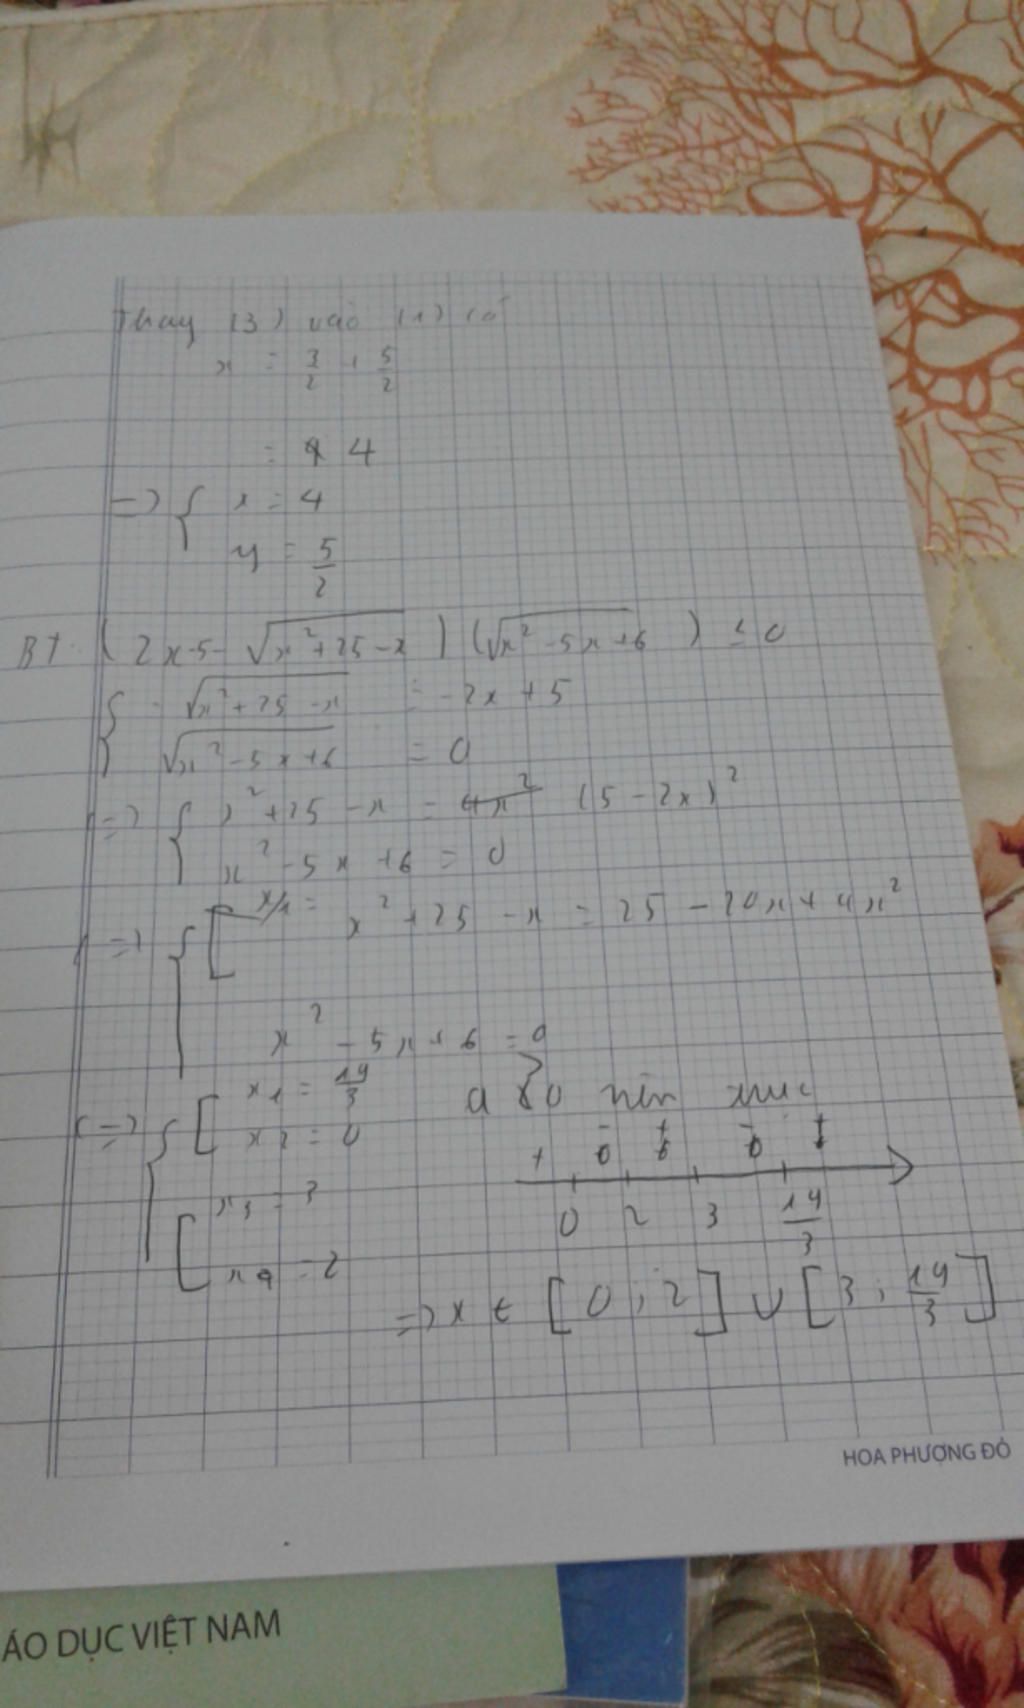 Thay (3) vào (1) có
x = 3/2 + 5/2
= 4
=> { x = 4
y = 5/2
BT: (2x-5-√(x²+25-x)) (√(x²-5x+6)) ≤ 0
{ -√(x²+25-x) = -2x+5
√(x²-5x+6) = 0
=> { x²+25-x = (5-2x)²
x²-5x+6 = 0
=> { [ x²+25-x = 25-20x+4x²
x²-5x+6 = 0
(=> { [ x1 = 19/3
x2 = 0
a > 0 nên
+ - + - +
0 2 3 19/3
[ x3 = 3
x4 = 2
=> x ∈ [0; 2] ∪ [3; 19/3]
HOA PHƯỢNG ĐỎ
ÁO DỤC VIỆT NAM